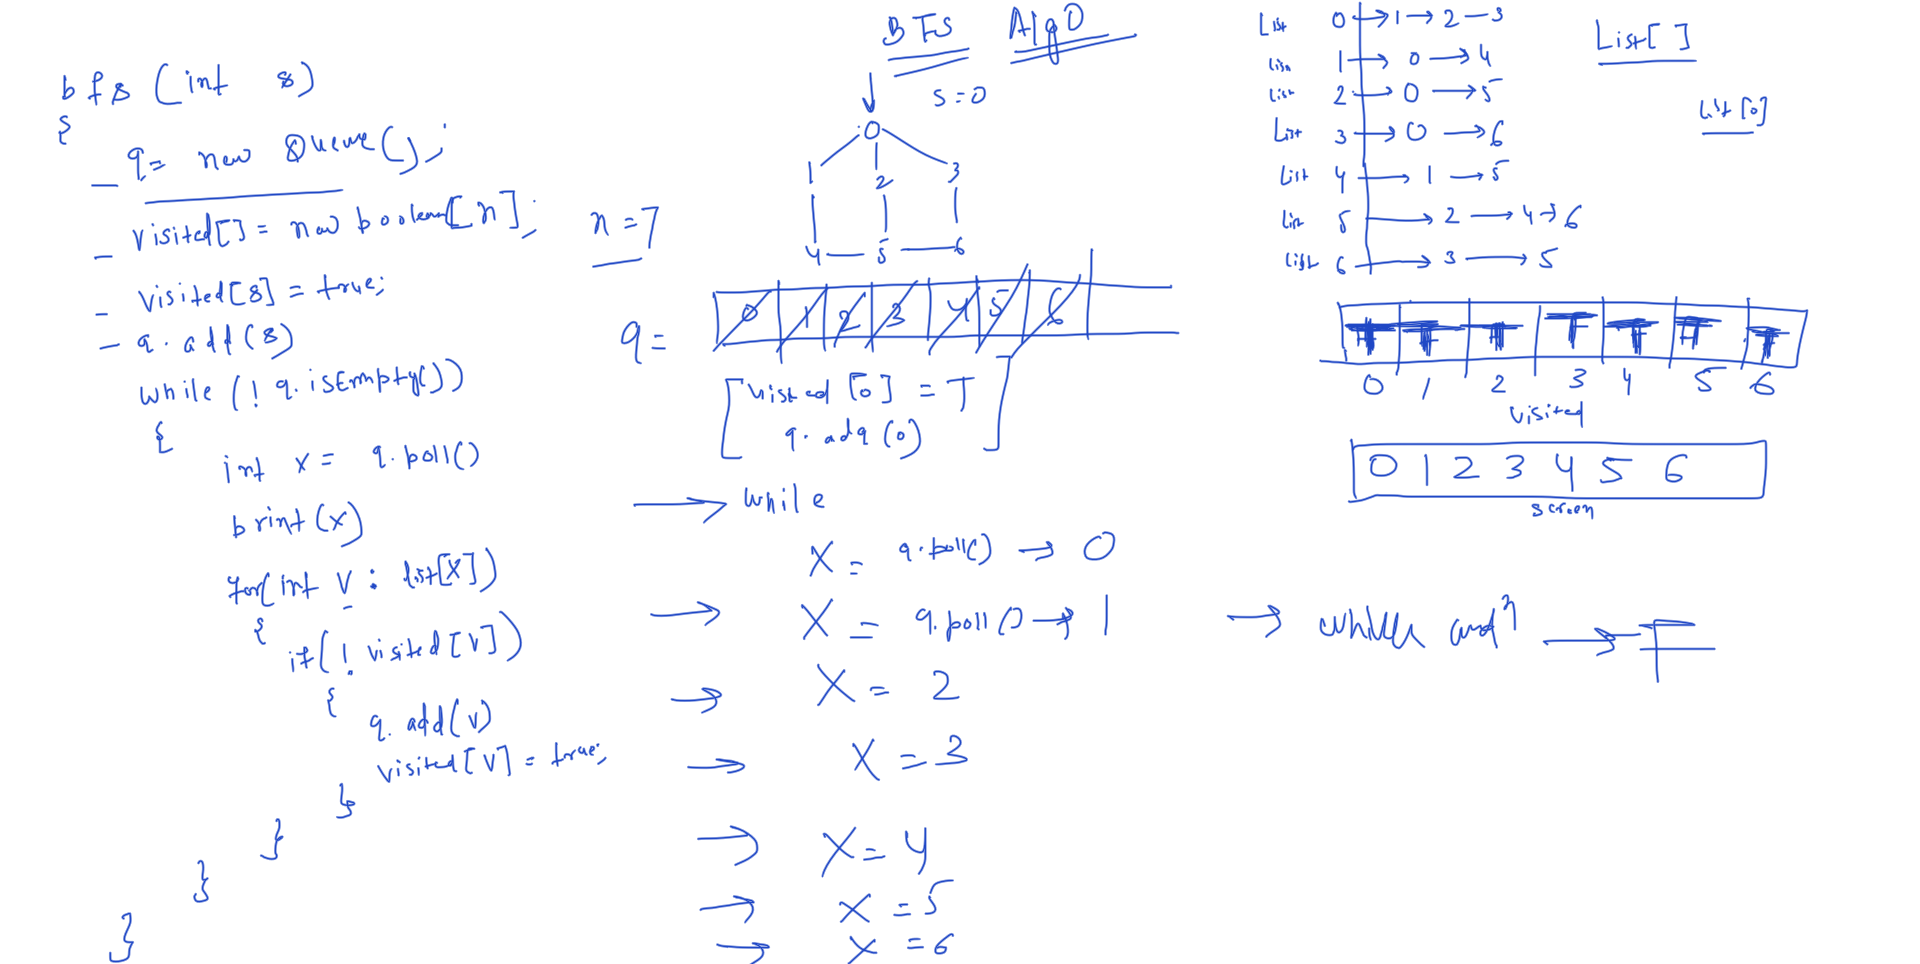 BFS Algo
bfs (int s)
{
q = new Queue();
visited[] = new boolean[n];
visited[s] = true;
q.add(s)
while (! q.isEmpty())
{
int x = q.poll()
print(x)
for(int v : list[x])
{
if(! visited[v])
{
q.add(v)
visited[v] = true;
}
}
}
}
n = 7
s = 0
0
1 2 3
4 5 6
q = 0 1 2 3 4 5 6
visited [0] = T
q.add (0)
→ while
x = q.poll() → 0
→ x = q.poll() → 1
→ x = 2
→ x = 3
→ x = 4
→ x = 5
→ x = 6
List 0 → 1 → 2 — 3
List 1 → 0 → 4
List 2 → 0 → 5
List 3 → 0 → 6
List 4 → 1 → 5
List 5 → 2 → 4 → 6
List 6 → 3 → 5
List[ ]
List [0]
T T T T T T T
0 1 2 3 4 5 6
visited
0 1 2 3 4 5 6
screen
→ while condⁿ → F